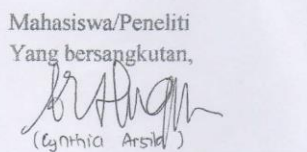 Mahasiswa/Peneliti
Yang bersangkutan,
(Cynthia Arsila)